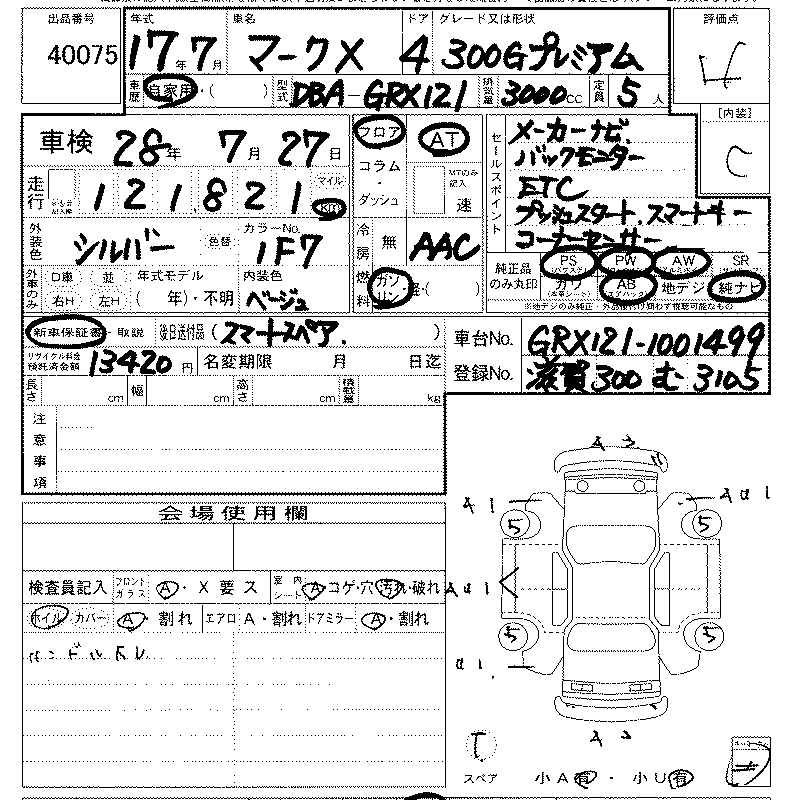 出品番号 年式 車名 ドア グレード又は形状 評価点
40075 17年 7月 マークX 4 300Gプレミアム 4
車歴 自家用・( ) 型式 DBA-GRX121 排気量 3000cc 定員 5人
[内装]
C
車検 28年 7月 27日 フロア AT セールスポイント メーカーナビ.
バックモニター
走行 121,821 マイル km コラム・ダッシュ MTのみ記入 速 ETC
プッシュスタート.スマートキー
外装色 シルバー 色替 カラーNo. 1F7 冷房 無 AAC コーナーセンサー
外車のみ D車 並 年式モデル 内装色 燃料 ガソリン・軽・( ) 純正品のみ丸印 PS PW AW SR
右H 左H ( 年)・不明 ベージュ カワ AB 地デジ 純ナビ
新車保証書・取説 後日送付品(スマートスペア. ) 車台No. GRX121-1001499
リサイクル料金預託済金額 13420円 名変期限 月 日迄 登録No. 滋賀300 む 3105
長さ cm 幅 cm 高さ cm 積載量 kg
注意事項
会場使用欄
検査員記入 フロントガラス A・X要ス 室内シート A・コゲ・穴・汚れ・破れ
ホイル カバー A・割れ エアロ A・割れ ドアミラー A・割れ
ハンドルスレ
A 2
A1 AU1
5 5
AU1
5 5
U1.
A 2
T
スペア 小A有・小U有